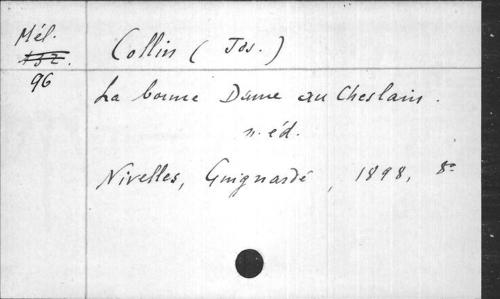 Mél.
132.
96
Collin (Jos.)
La bonne Dame au Cheslain.
n. éd.
Nivelles, Guignardé, 1898, 8°